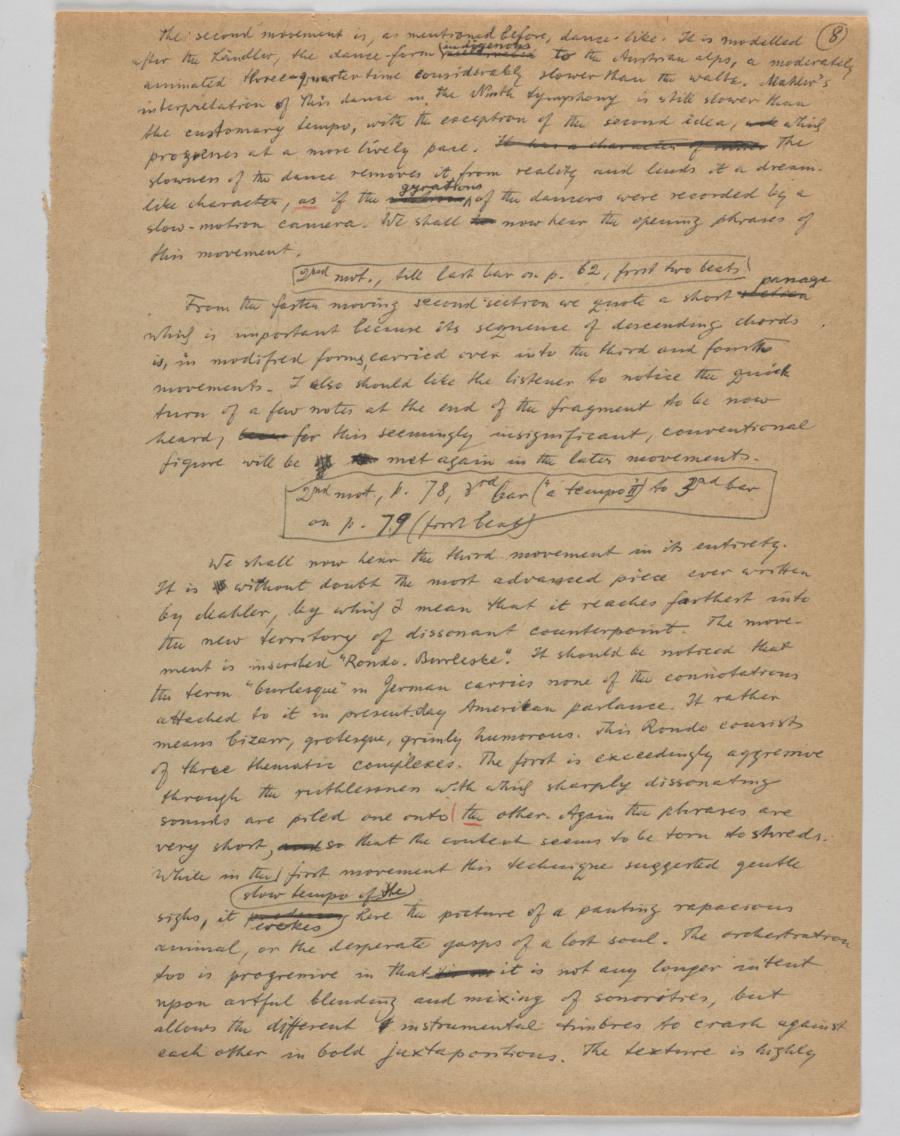 The second movement is, as mentioned before, dance-like. It is modelled (8)
after the Ländler, the dance-form indigenous to the Austrian alps, a moderately
animated three-quarter time considerably slower than the waltz. Mahler's
interpretation of this dance in the Ninth Symphony is still slower than
the customary tempo, with the exception of the second idea, which
progresses at a more lively pace. It has a character of The
slowness of the dance removes it from reality and lends it a dream-
like character, as if the gyrations of the dancers were recorded by a
slow-motion camera. We shall now hear the opening phrases of
this movement.
2nd mvt., till last bar on p. 62, first two beats
From the faster moving second section we quote a short passage
which is important because its sequence of descending chords
is, in modified forms, carried over into the third and fourth
movements. I also should like the listener to notice the quick
turn of a few notes at the end of the fragment to be now
heard, for this seemingly insignificant, conventional
figure will be met again in the later movements.
2nd mvt., p. 78, 3rd bar ("a tempo II") to 3rd bar
on p. 79 (first beat)
We shall now hear the third movement in its entirety.
It is without doubt the most advanced piece ever written
by Mahler, by which I mean that it reaches farthest into
the new territory of dissonant counterpoint. The move-
ment is inscribed "Rondo-Burleske". It should be noticed that
the term "burlesque" in German carries none of the connotations
attached to it in present-day American parlance. It rather
means bizarr, grotesque, grimly humorous. This Rondo consists
of three thematic complexes. The first is exceedingly aggressive
through the ruthlessness with which sharply dissonating
sounds are piled one onto the other. Again the phrases are
very short, so that the context seems to be torn to shreds.
While in the first movement this technique suggested gentle
slow tempo of the
sighs, it evokes here the picture of a panting rapacious
animal, or the desperate gasps of a lost soul. The orchestration
too is progressive in that it is not any longer intent
upon artful blending and mixing of sonorities, but
allows the different instrumental timbres to crash against
each other in bold juxtapositions. The texture is highly